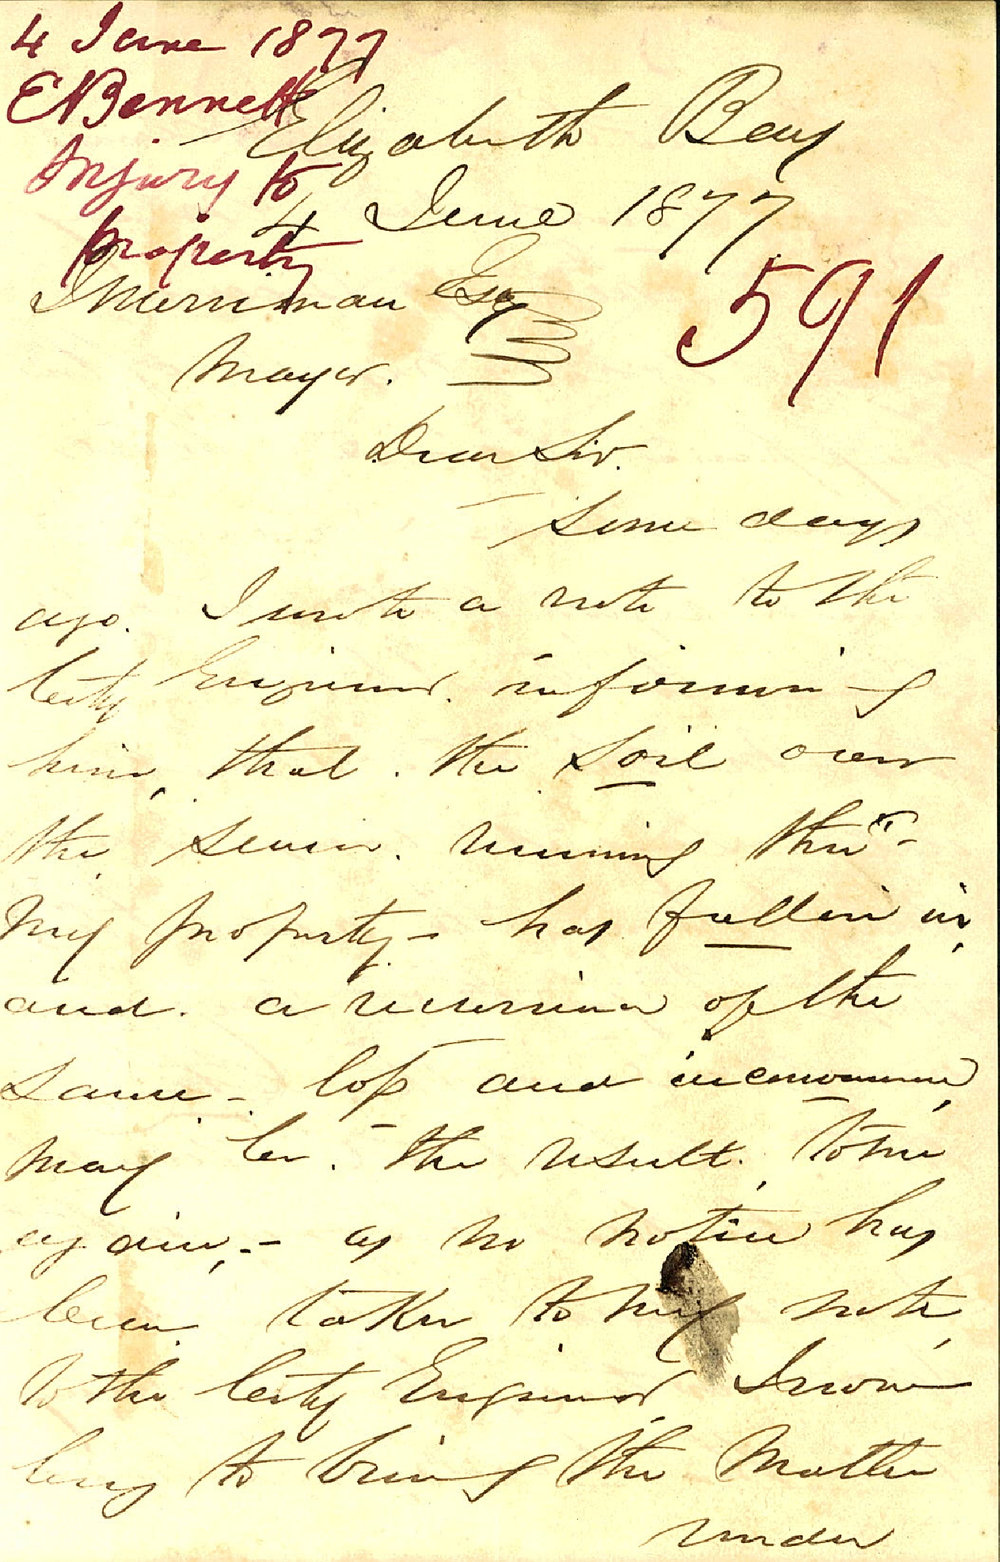 4 June 1877
E Bennett
Injury to
property
591
Elizabeth Bay
4 June 1877
J Merriman Esq
Mayor.
Dear Sir.
Some days
ago. I wrote a note to the
City Engineer. informing
him, that. the Soil over
the sewer. running thro'-
my property- has fallen in,
and. a recurrence of the
same-. loss and inconvenience,
may be. the result. to me
again,- as no notice has
been taken to my note,
to the City Engineer, I now
beg to bring the matter
under